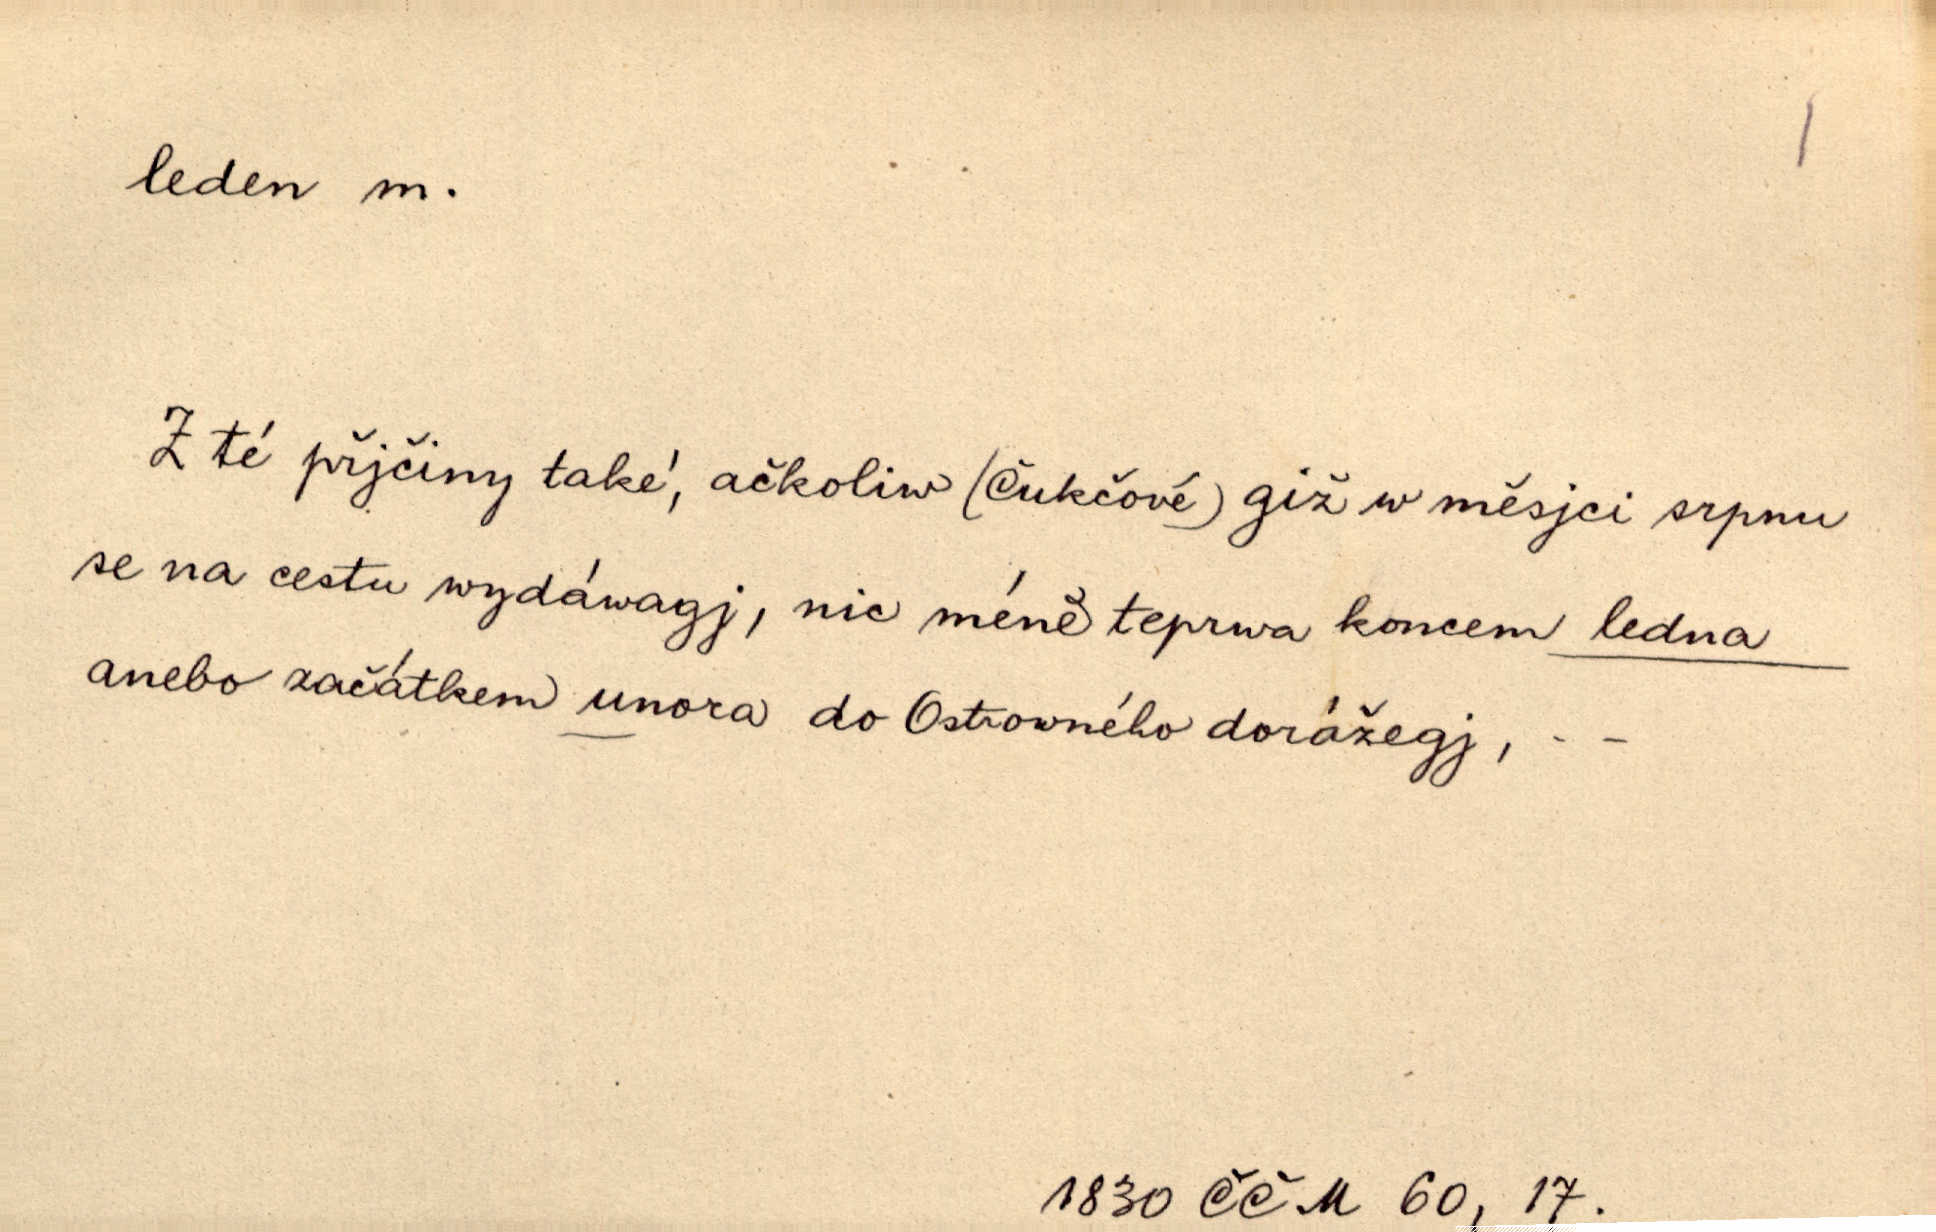 leden m.
Z té přjčiny také, ačkoliw (Čukčové) giž w měsjci srpnu
se na cestu wydáwagj, nic méně teprwa koncem ledna
anebo začátkem unora do Ostrowného dorážegj, - -
1830 ČČM 60, 17.